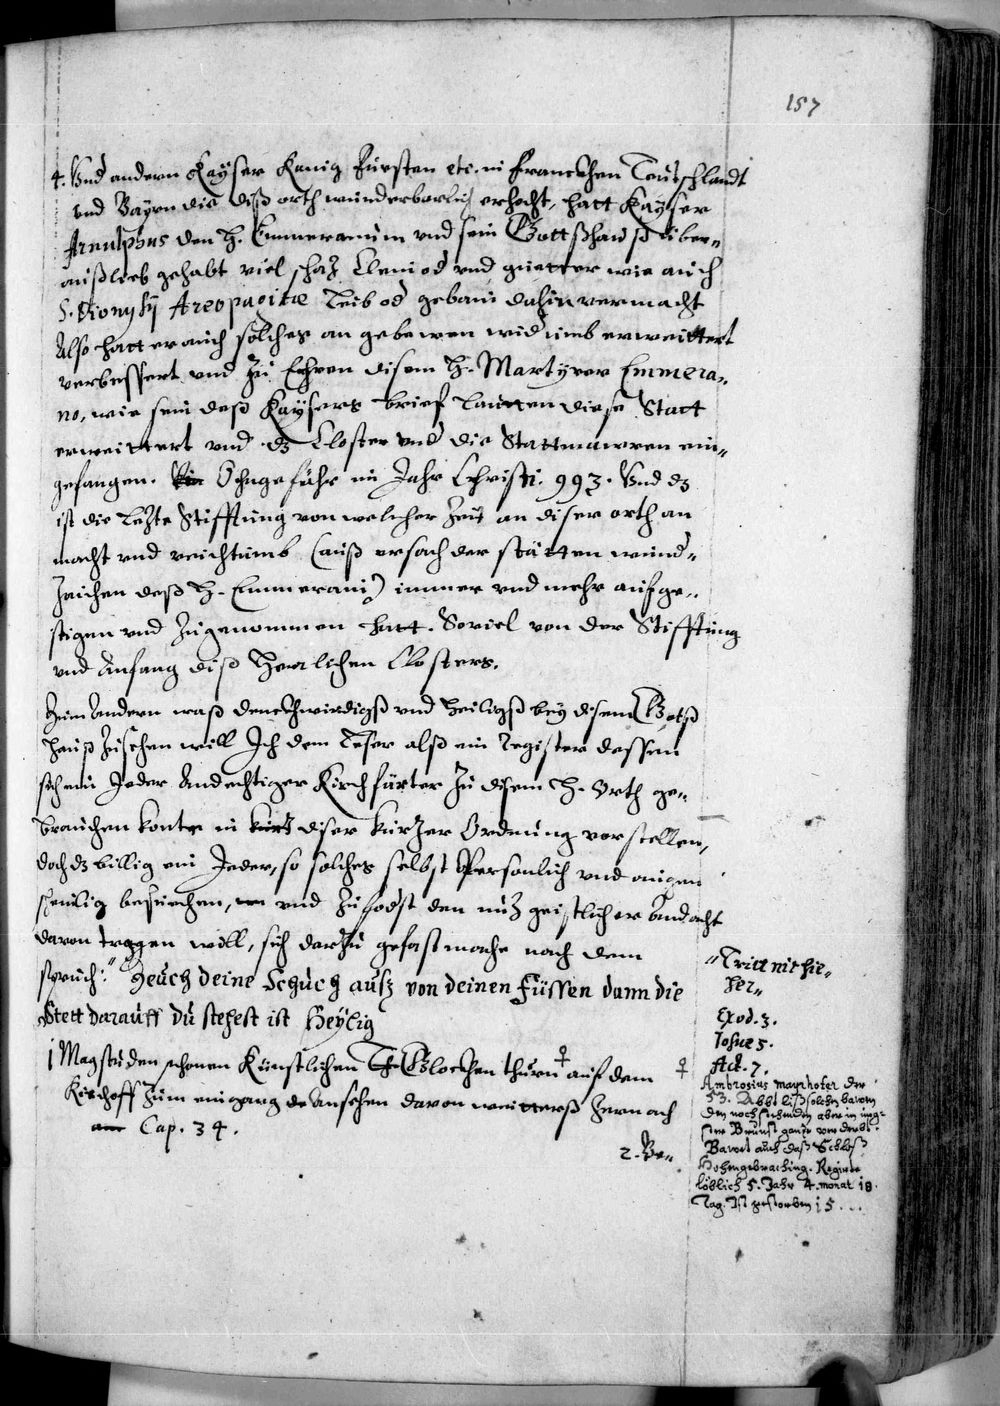 157
4. Vnd andern Kayser Kenig Fürsten etc. in Franckhen Teütschlandt
vnd Bayrn die diß orth wunderbarlich erhecht, hatt Kayser
Arnulphus den H. Emmeramum vnd sein Gottßhauß über„
außlieb gehabt viel schaz Cleniod vnd güetter wie auch
S. Dionysij Areopagitæ Leib od gebain dahin vermacht
Also hatt er auch solches an gebewen widumb erweittert
verbessert vnd zu Ehren disem H. Martyrer Emmera„
no, wie sein deß Kaysers brief lautten diese Statt
erweittert vnd dz Closter vnd die Stattmauren ein„
gefangen. Ohngefähr im Jahr Christi. 993. Vnd dz
ist die Lezte Stifftung von welcher Zeit an diser orth an
macht vnd reichtumb (auß vrsach der stätten wund„
Zaichen deß H. Emmerani) immer vnd mehr aufge„
stigen vnd zugenommen hatt. Soviel von der Stifftung
vnd Anfang diß Herrlichen Closters.
Zum Andern waß denckhwirdigß vnd heiligß bey disem Gotß
hauß zusechen will Ich dem Leser alß ein Register dessen
sich ein Jeder Andechtiger Kirchfürter zu disem H. Orth ge„
brauchen konte in kurtz diser kurtzer Ordnung vorstellen,
doch dz billig ein Jeder, so solches selbst Persönlich vnd augen
scheinlig besuechen, vnd zufodst den nuz geistlicher andacht
davon tragen will, sich darzu gefast mache nach dem
spruch: "Zeuch deine Schuch ausz von deinen Füssen dann die
Stett darauff du stehest ist Heylig
1 Magstu den schonen Künstlichen Glockhen thurn ♀ auf dem
Kirchoff zum eingang ansehen davon weitterß hernach
Cap. 34.
2. Be„
„Tritt nit hie„
her„
Exod. 3.
Josue 5.
Act. 7.
♀ Ambrosius mayrhofer der
53. Abbt ließ solchen bawen
den noch stehenden aber in jüng„
ster Brunst gantz verderbt.
Bawet auch daß Schloß
Hohengebraching. Regierte
löblich 5. Jahr 4. monat 18.
Tag. Ist gestorben 15...